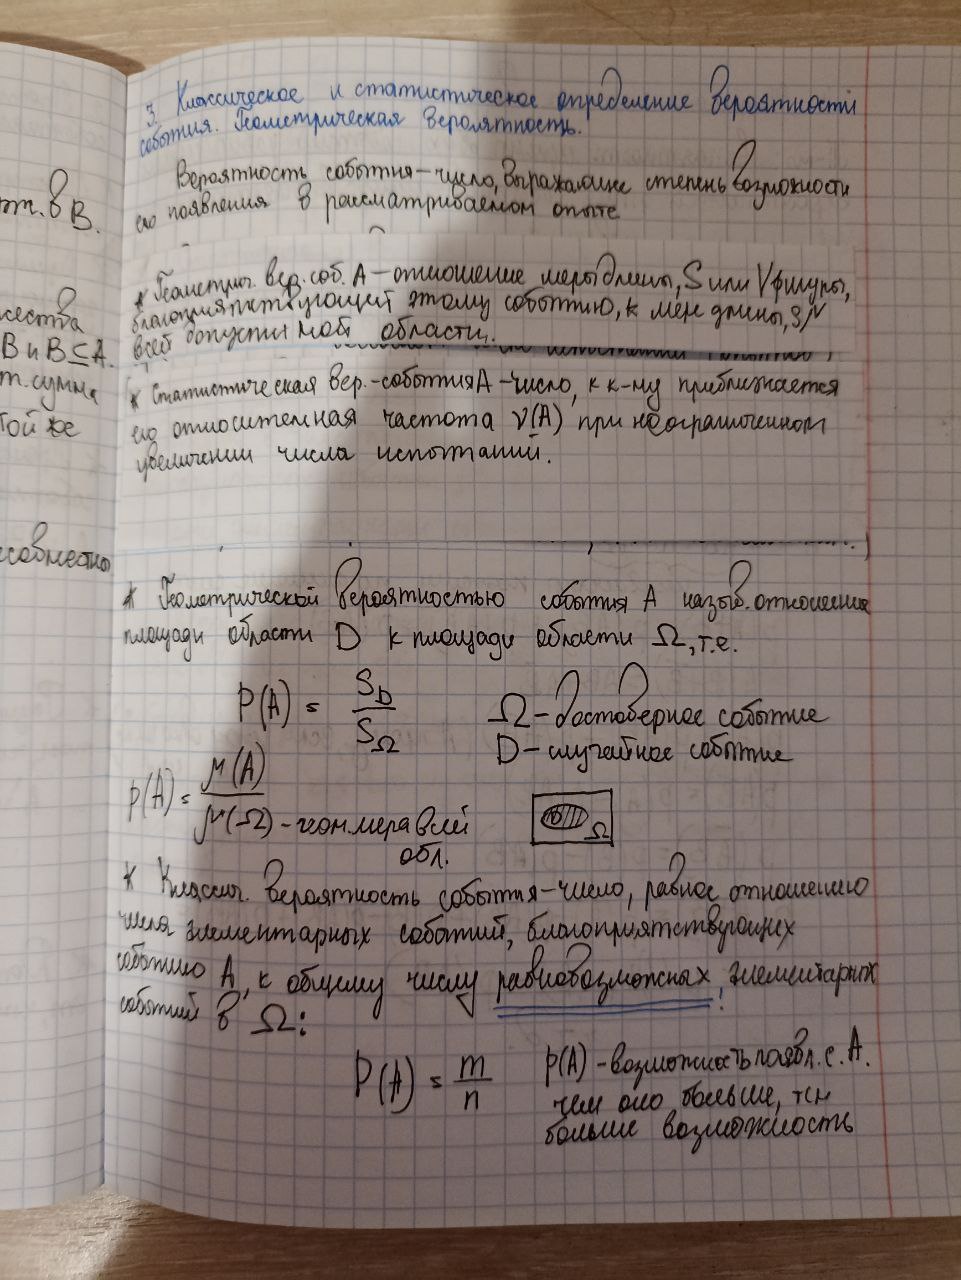 т. в В.
жества
В и В⊆А.
т. сумма
той же
совместны
3. Классическое и статистическое определение вероятности
события. Геометрическая вероятность.
Вероятность события – число, выражающее степень возможности
его появления в рассматриваемом опыте
* Геометрич. вер. соб. А – отношение меры длины, S или V фигуры,
благоприятствующей этому событию, к мере длины, S/V
всей допустимой области.
* Статистическая вер. – события А – число, к к-му приближается
его относительная частота ν(А) при неограниченном
увеличении числа испытаний.
* Геометрической вероятностью события А назыв. отношение
площади области D к площади области Ω, т.е.
P(A) = S_D / S_Ω
Ω – достоверное событие
D – случайное событие
p(A) = μ(A) / μ(Ω) – геом. мера всей
обл.
D Ω
* Классич. вероятность события – число, равное отношению
числа элементарных событий, благоприятствующих
событию А, к общему числу равновозможных элементарных
событий в Ω:
P(A) = m / n
p(A) – возможность появл. с. А.
чем оно больше, тем
больше возможность